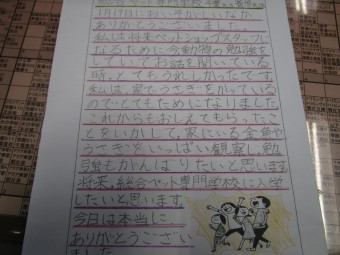 1月17日におい そがしいなか、
ありがとうございました。
私は将来ペットショップスタッフに
なるために今動物の勉強を
していてお話を聞いている
時、とてもうれしかったです。
私は、家でうさぎをかっている
のでとてもためになりました
これからもおしえてもらったこ
とをいかして、家にいる金魚や
うさぎをいっぱい観察し、勉
強もがんばりたいと思います
将来、総合ペット専門学校に入学
したいと思います。
今日は本当に
ありがとうござい
ました